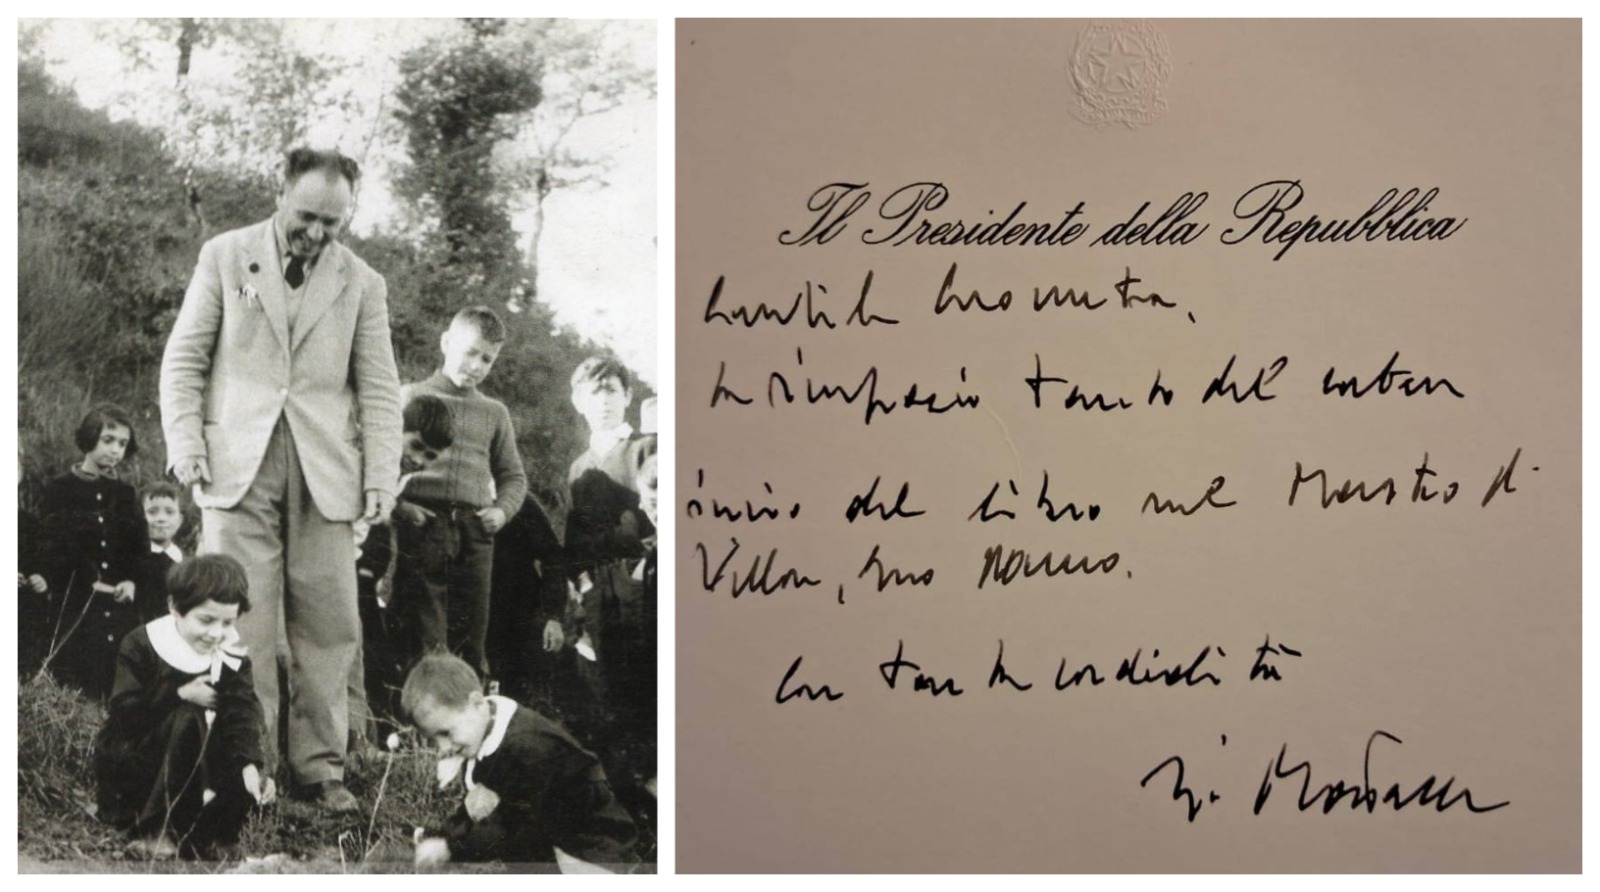 Il Presidente della Repubblica
Gentile Geometra,
La ringrazio tanto del cortese
invio del libro sul Maestro di
Villore, Suo Nonno.
Con tanta cordialità
Mattarella